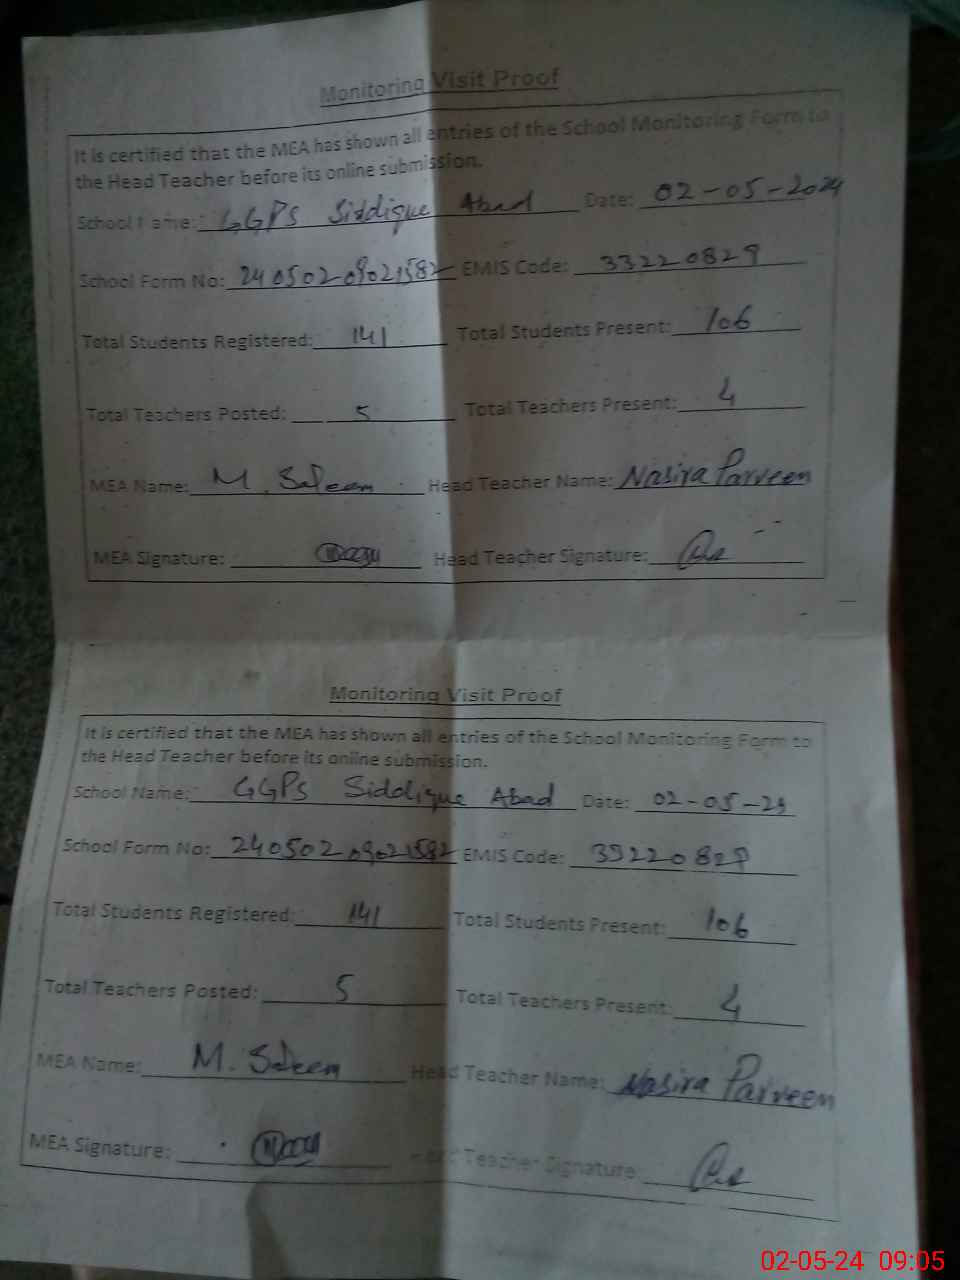 Monitoring Visit Proof
It is certified that the MEA has shown all entries of the School Monitoring Form to
the Head Teacher before its online submission.
School Name: GGPS Siddique Abad Date: 02-05-2024
School Form No: 24050209021582 EMIS Code: 33220829
Total Students Registered: 141 Total Students Present: 106
Total Teachers Posted: 5 Total Teachers Present: 4
MEA Name: M. Saleem Head Teacher Name: Nasira Parveen
MEA Signature: Head Teacher Signature:
Monitoring Visit Proof
It is certified that the MEA has shown all entries of the School Monitoring Form to
the Head Teacher before its online submission.
School Name: GGPS Siddique Abad Date: 02-05-24
School Form No: 24050209021582 EMIS Code: 33220829
Total Students Registered: 141 Total Students Present: 106
Total Teachers Posted: 5 Total Teachers Present: 4
MEA Name: M. Saleem Head Teacher Name: Nasira Parveen
MEA Signature: Head Teacher Signature:
02-05-24 09:05